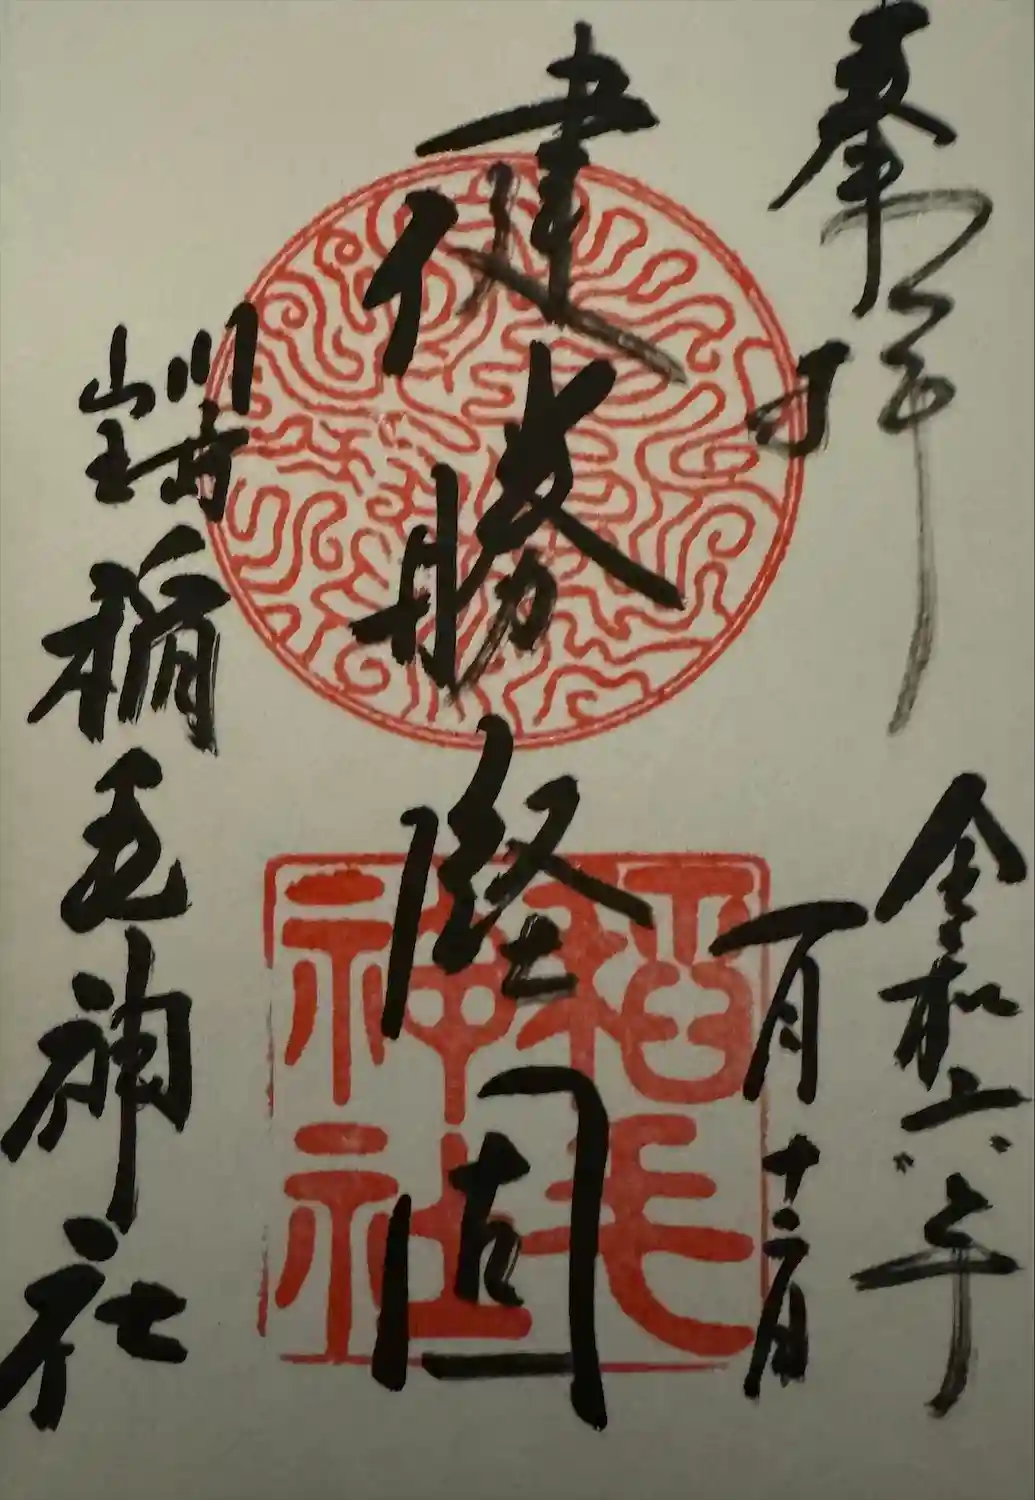 奉拝
令和六年
一月十二日
健勝堅固
川崎
山王
稲毛神社
稲毛
神社